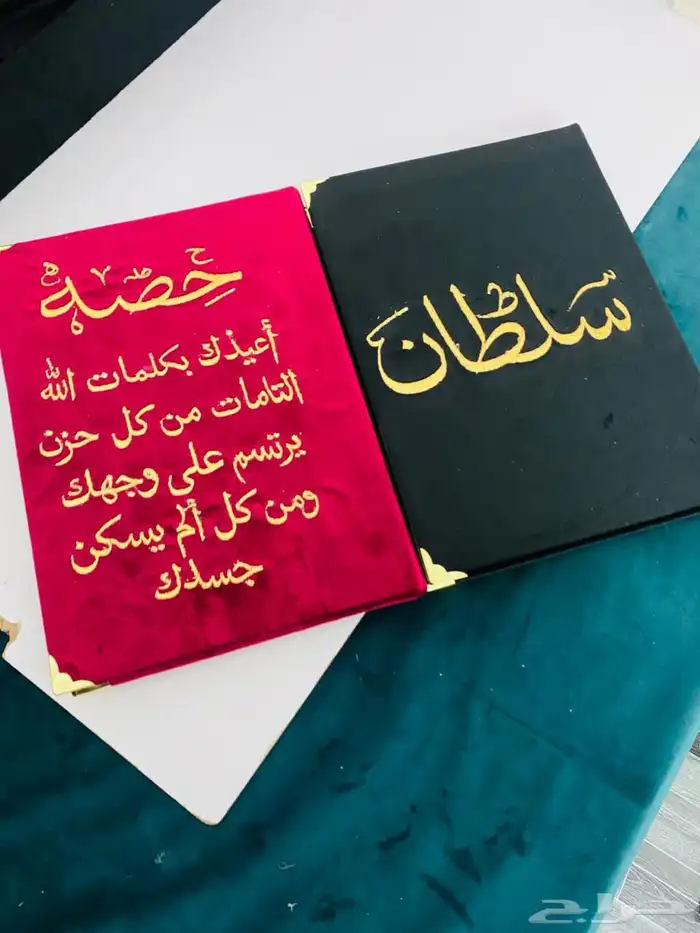 حصه
أعيذك بكلمات الله
التامات من كل حزن
يرتسم على وجهك
ومن كل ألم يسكن
جسدك
سلطان
حراج